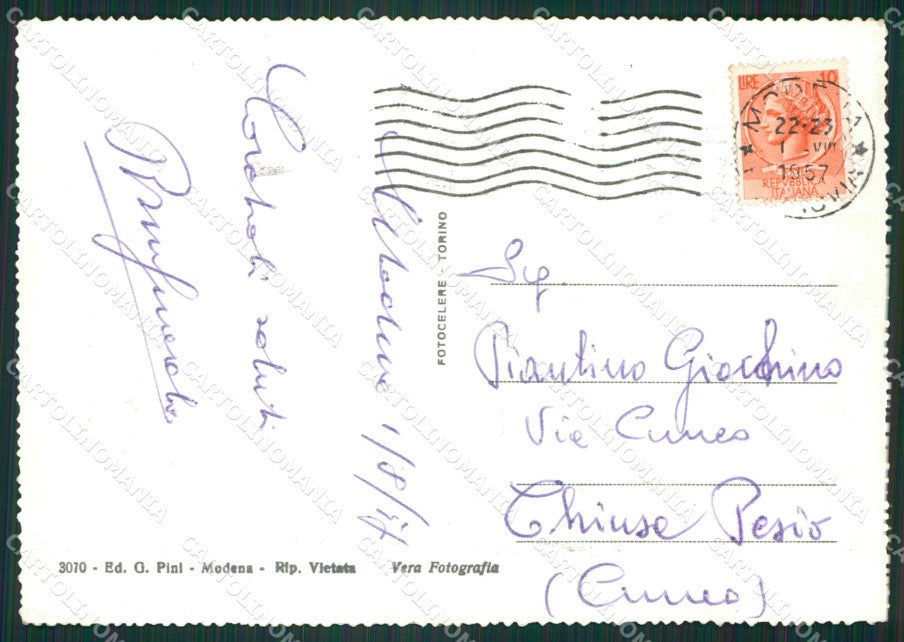 Modena 1/8/57
Cordiali saluti
LIRE 10
REPVBBLICA
ITALIANA
MODENA
22-23
1 -VIII
1957
FOTOCELERE - TORINO
Sig.
Piantino Giochino
Via Cuneo
Chiusa Pesio
(Cuneo)
3070 - Ed. G. Pini - Modena - Rip. Vietata
Vera Fotografia
CARTOLINOMANIA